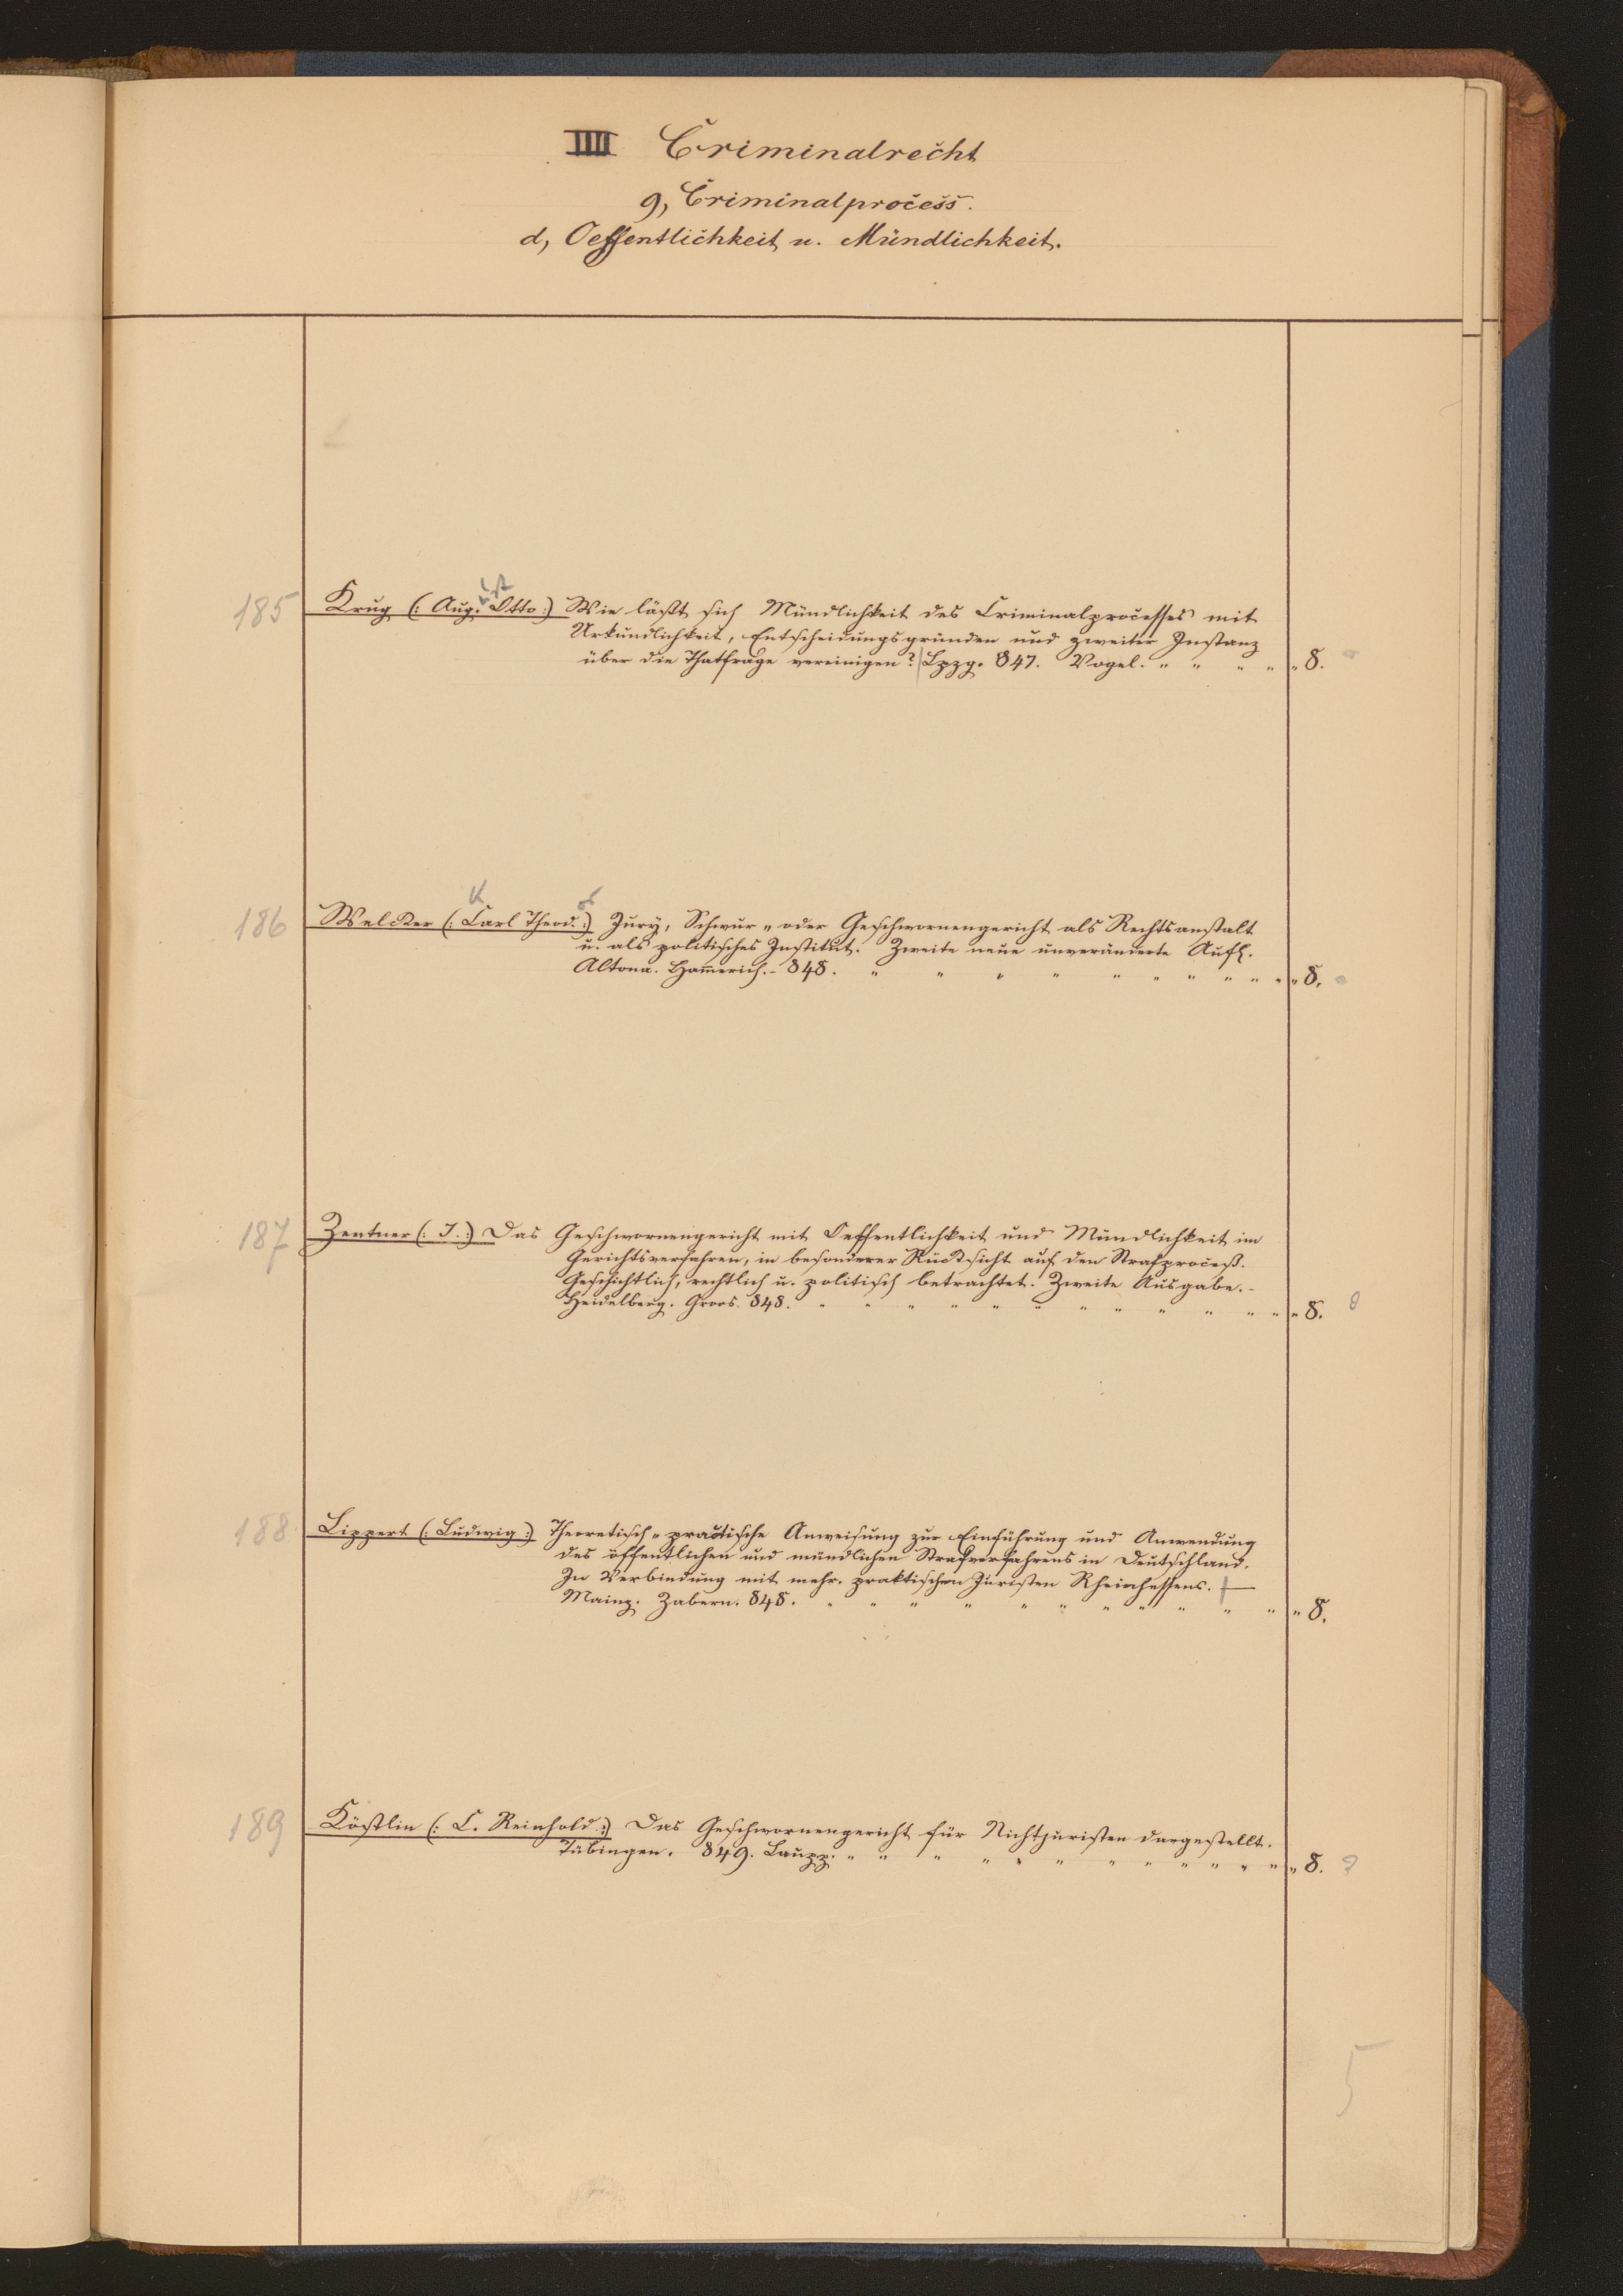 IIII Criminalrecht
g, Criminalprocess.
d, Oeffentlichkeit u. Mündlichkeit.
185 Krug (: Aug. Otto :) Wie läßt sich Mündlichkeit des Criminalprocesses mit
Urkundlichkeit, Entscheidungsgründen und zweiter Instanz
über die Thatfrage vereinigen? Lpzg. 847. Vogel. " " " " " 8.
186 Welcker (: Carl Theod. :) Jury, Schwur- oder Geschwornengericht als Rechtsanstalt
K
u. als politisches Institut. Zweite neue unveränderte Aufl.
Altona. Hamerich. - 848. " " " " " " " " " " " " 8.
187 Zentner (: J. :) Das Geschwornengericht mit Oeffentlichkeit und Mündlichkeit im
Gerichtsverfahren, in besonderer Rücksicht auf den Strafproceß.
Geschichtlich, rechtlich u. politisch betrachtet. Zweite Ausgabe. -
Heidelberg. Groos. 848. " " " " " " " " " " " " " 8.
188 Lippert (: Ludwig :) Theoretisch-practische Anweisung zur Einführung und Anwendung
des öffentlichen und mündlichen Strafverfahrens in Deutschland.
In Verbindung mit mehr. praktischen Juristen Rheinhessens. —
Mainz. Zabern. 848. " " " " " " " " " " " " 8.
189 Köstlin (: C. Reinhold :) Das Geschwornengericht für Nichtjuristen dargestellt.
Tübingen. 849. Laupp. " " " " " " " " " " " " " 8.
5